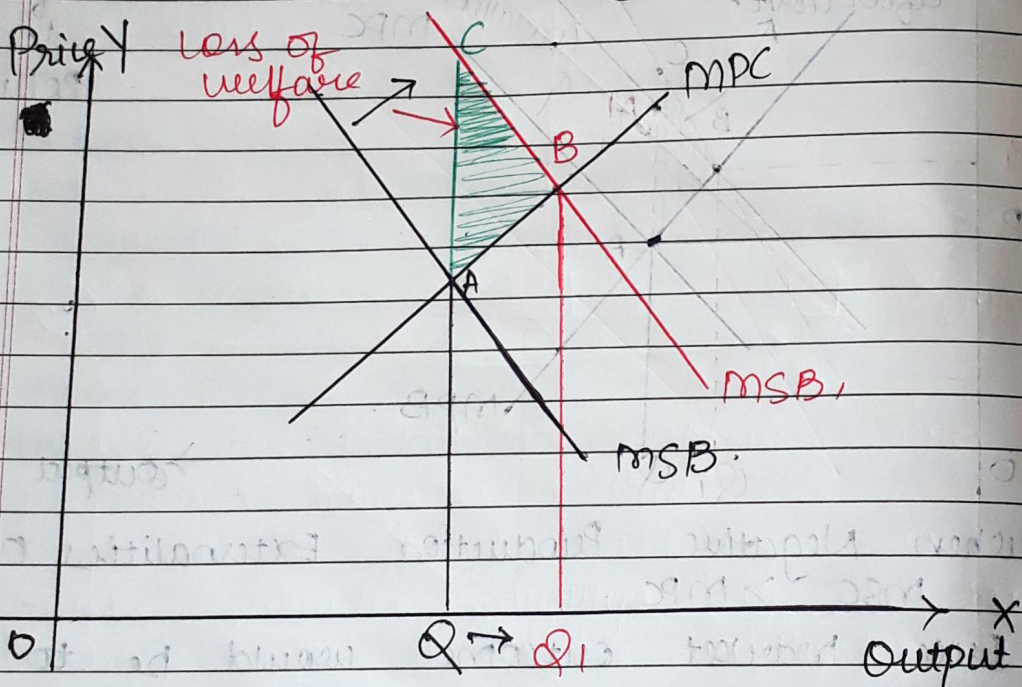 Price Y
Loss of
welfare
C
MPC
B
A
MSB1
MSB.
O
Q → Q1
Output
X